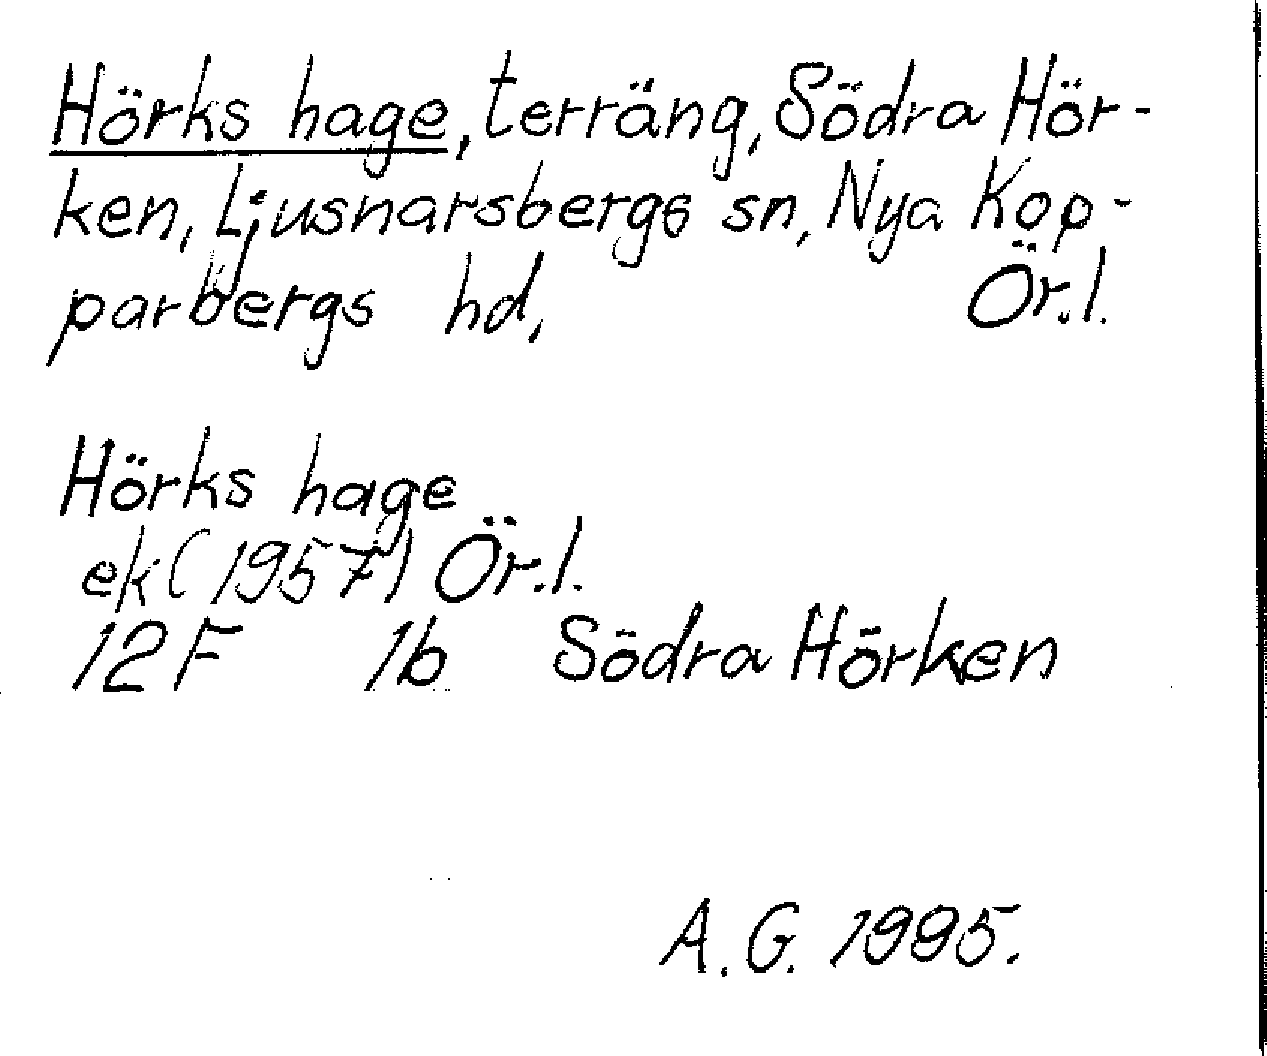 Hörks hage, terräng, Södra Hör-
ken, Ljusnarsbergs sn, Nya Kop-
parbergs hd, Ör.l.
Hörks hage
ek (1957) Ör.l.
12F 1b Södra Hörken
A.G. 1995.